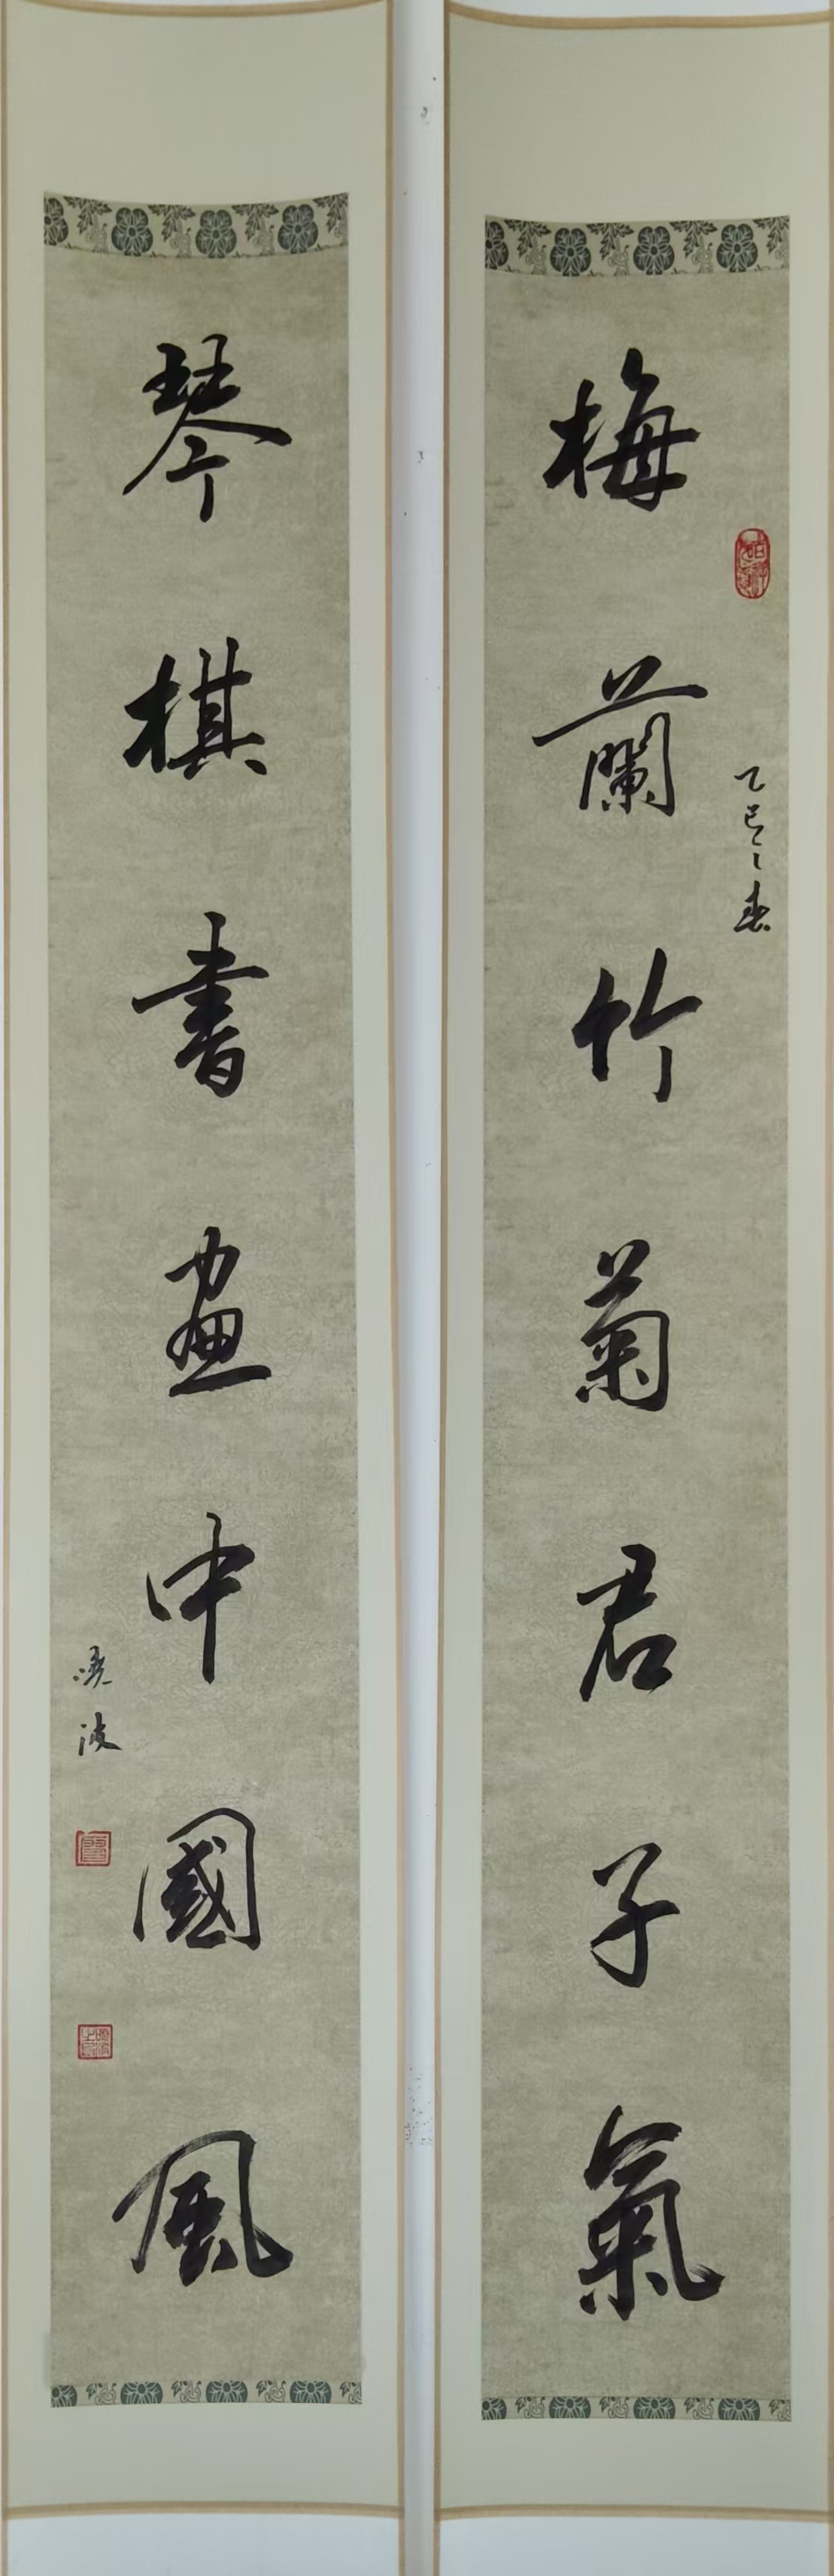 梅蘭竹菊君子氣
乙巳之春
琴棋書畫中國風
波